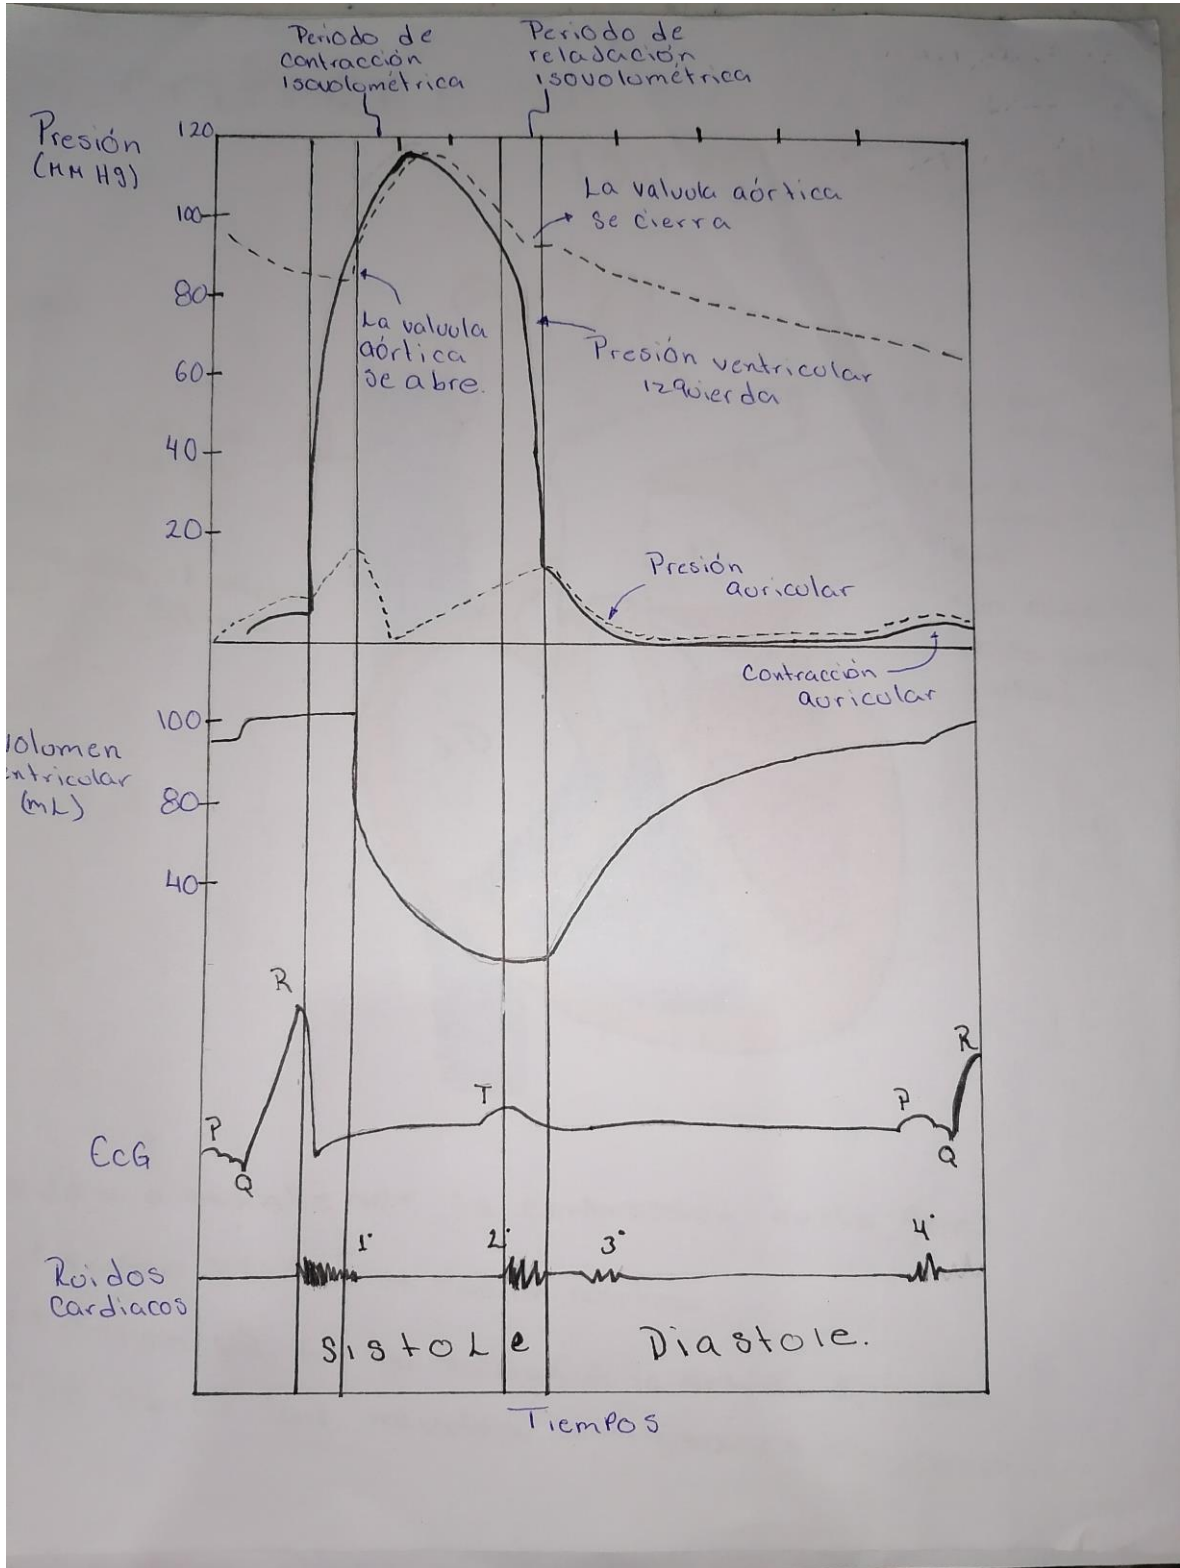 Periodo de
contracción
isovolométrica
Periodo de
relajación
isovolométrica
Presión
(MM Hg)
120
100
80
60
40
20
La valvula aórtica
se cierra
La valvula
aórtica
se abre.
Presión ventricular
izquierda
Presión
auricular
Contracción
auricular
volumen
entricular
(mL)
100
80
40
R
P
Q
T
P
R
Q
ECG
1°
2°
3°
4°
Ruidos
Cardiacos
Sistole
Diastole.
Tiempos